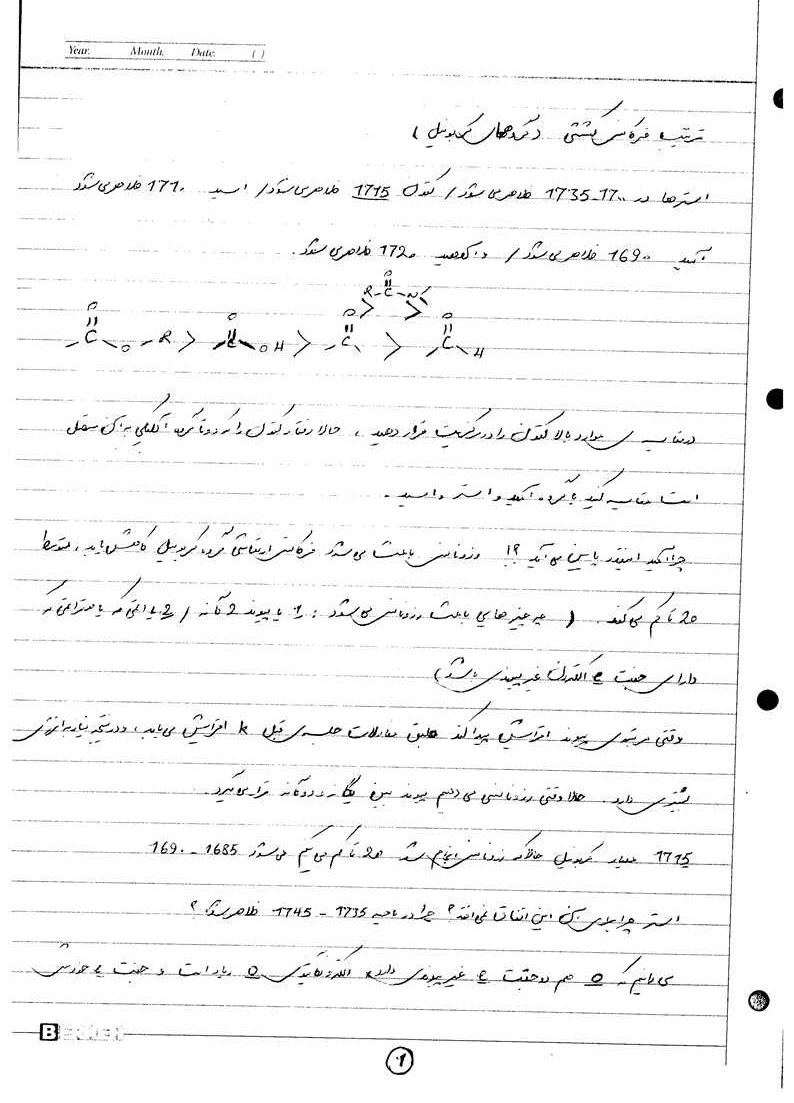 Year. Month. Date. ( )
ترتیب فرکانس کششی (گروههای کربونیل)
استرها در 1735-1700 ظاهر می شود / کتون 1715 ظاهر می شود / اسید 1710 ظاهر می شود
آمید 1690 ظاهر می شود / و آلدهید 1720 ظاهر می شود.
R-C-N
O O O O O
C O-R > C OH > C > C H
در مقایسه ی موارد بالا کتون را در قرار دهید، حالا رفتار کتون را که دو تا گروه آلکیل به آن متصل
است مقایسه کنید با گروه آمید و استر و اسید.
چرا آمید اینقدر پایین می آید؟! رزونانس باعث می شود فرکانس ارتعاشی گروه کربونیل کاهش یابد، متوسط
30 تا کم می کند. (چه چیزهایی باعث رزونانس می شود: 1 یا پیوند 2 گانه / 2 یا اتمی که یا هترواتمی که
دارای جفت e الکترون غیر پیوندی باشد)
وقتی مرتبه ی پیوند افزایش پیدا کند طبق معادلات جلسه ی قبل k افزایش می یابد، و در نتیجه نیاز به انرژی
بیشتری دارد. حالا وقتی رزونانس می دهیم پیوند بین یگانه و دوگانه قرار می گیرد.
1715 معیار کربونیل حالا که رزونانس انجام شد 30 تا کم می کنیم می شود 1685 - 1690
استر چرا برای آن این اتفاق نمی افتد؟ چرا در ناحیه 1735 - 1745 ظاهر می شود؟
می دانیم که O هم دو جفت e غیر پیوندی دارد الکترونگاتیوی O زیاد است و جفت e خودش
B
1